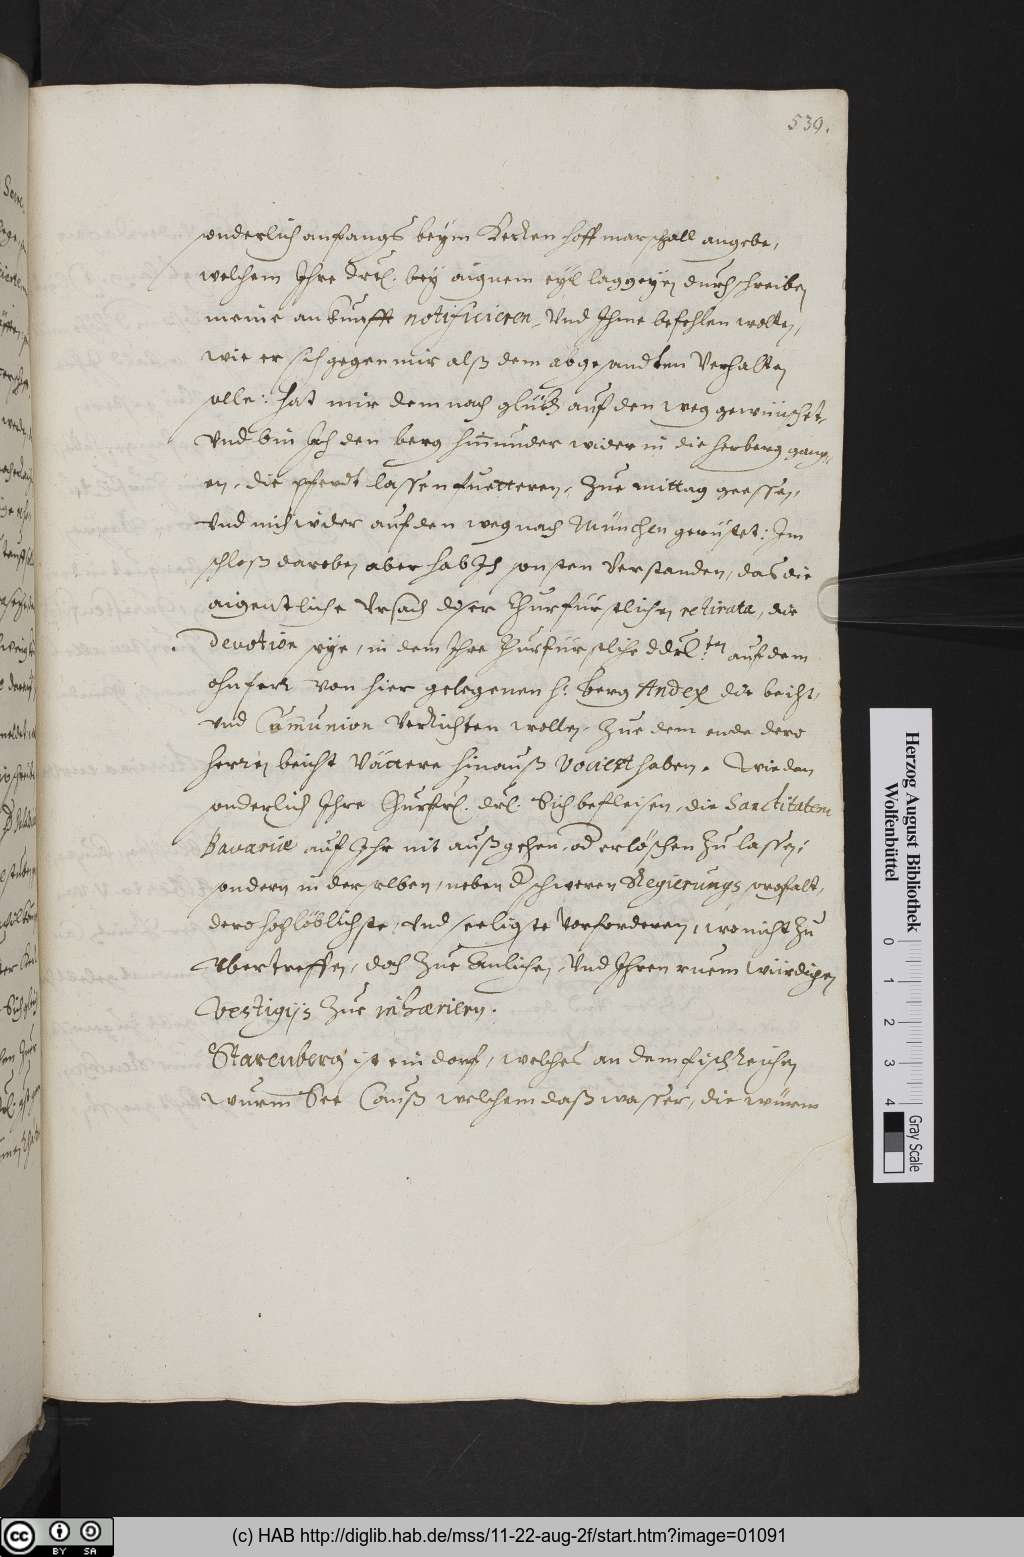 539.
sonderlich anfangs beym Herren hoff marschall angebe,
welchem Ihre Drtl. bey aignem eyl laggeyen durch schreiben
meine ankunfft notificieren, Vnd Ihme befehlen wollen,
wie er sich gegen mir alß dem abgesandten Verhalten
solle: hat mir demnach glükh auf den weg gewünschet,
Vnd bin Ich den berg hinunder wider in die herberg gang,
en, die pferdt lassen fuetteren, Zue mittag geessen,
Vnd mich wider auf den weg nach München gerüstet: Im
schloß daroben aber hab Ich sonsten Verstanden, das die
aigentliche Vrsach diser Churfürstlichen retirata, die
devotion seye, in dem Ihre Churfürstliche ddrl.ten auf dem
ohnferr von hier gelegenen h: berg Andex die beicht,
vnd Communion Verrichten wollen, Zue dem ende dero
herren beicht Vättere hinauß Vociert haben. Wie dan
sonderlich Ihre Churfrl. drl. Sich befleisen, die Sanctitatem
Bavariæ auf Ihr nit außgehen, od erlöschen Zu lassen;
sondern in derselben, neben d schweren Regierungs sorgfalt,
dero hochlöblichste, vnd seeligste Vorforderen, wo nicht Zu
Vbertreffen, doch Zue änlichen, Vnd Ihren ruem würdigen
Vestigijs Zue inhærieren.
Starenberg ist ein dorf, welches an dem fischreichen
wurm See (auß welchem daß wasser, die würm
Herzog August Bibliothek
Wolfenbüttel
0 1 2 3 4
Gray Scale
cc BY SA
(c) HAB http://diglib.hab.de/mss/11-22-aug-2f/start.htm?image=01091